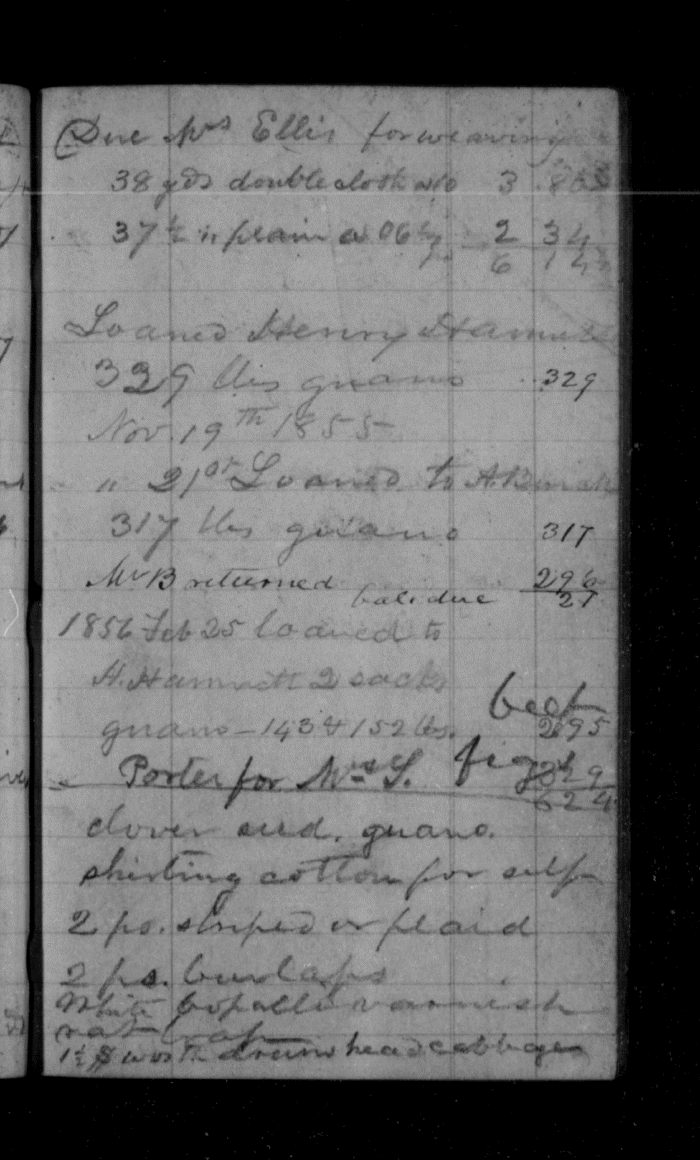 Due Mrs Ellis for weaving
38 yds double cloth a 10 3 80
37 ½ " plain a 06 ¼ 2 34
6 14
Loaned Henry Hammett
329 lbs guano 329
Nov. 19th 1855
" 21st Loaned to A.
317 lbs guano 317
Mr B returned 296
bal. due 21
1856 Feb 25 loaned to
H. Hammett 2 sacks
beef
guano - 143 & 152 lbs. 295
Porter for Mrs S. figs 329
624
clover seed. guano.
shirting cotton for self
2 ps. striped or plaid
2 ps. burlaps
White copall varnish
rat trap
1½ $ worth drum head cabbage